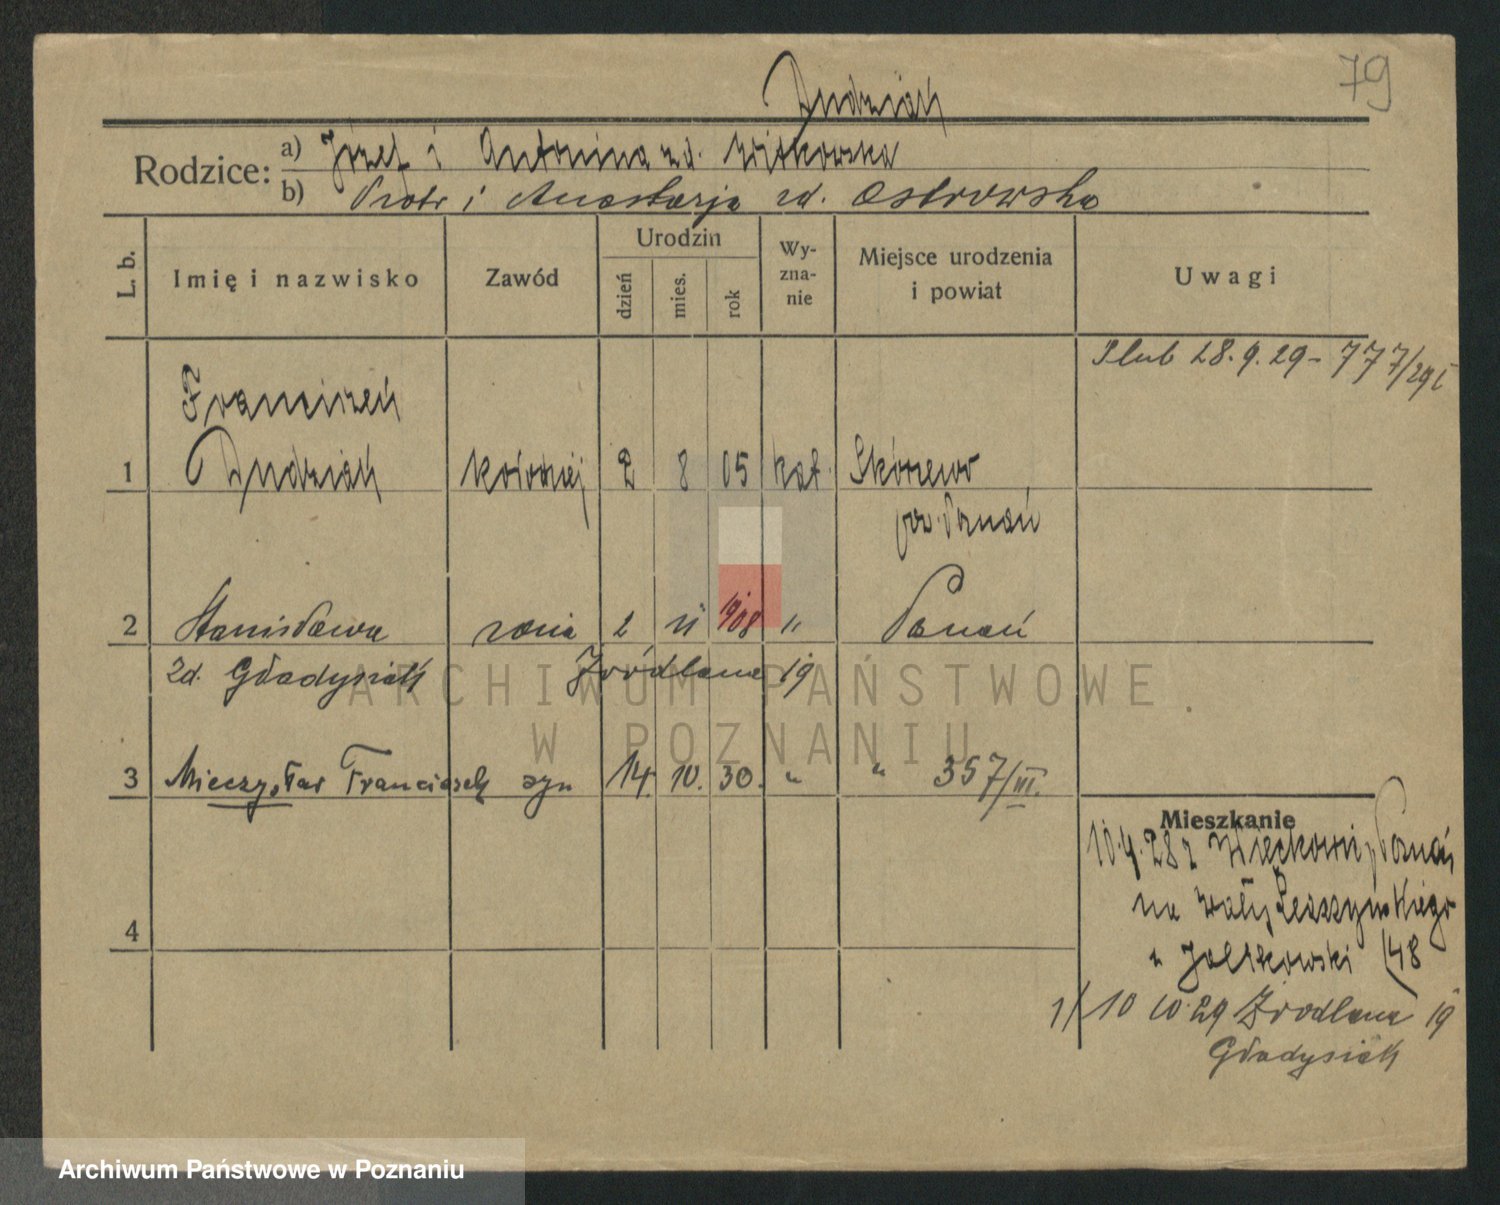 79
Dudziak
Rodzice: a) Józef i Antonina zd. Witkowska
b) Piotr i Anastazja zd. Ostrowska
L. b.
Imię i nazwisko
Zawód
Urodzin
dzień
mies.
rok
Wy-
zna-
nie
Miejsce urodzenia
i powiat
Uwagi
Ślub 28.9.29 - 777/29 I
Franciszek
1 Dudziak kołodziej 2 8 05 kat. Skórzewo
pow. Poznań
2 Stanisława żona 2 11 1908 " Poznań
zd. Gładysiak Źródlana 19
3 Mieczysław Franciszek syn 14. 10. 30. " " 357/III.
4
Mieszkanie
10.4.28 z Poznań
na Wały Leszczyńskiego
u
1/ 10 10.29 Źrodlana 19
Gładysiak
ARCHIWUM PAŃSTWOWE
W POZNANIU
Archiwum Państwowe w Poznaniu